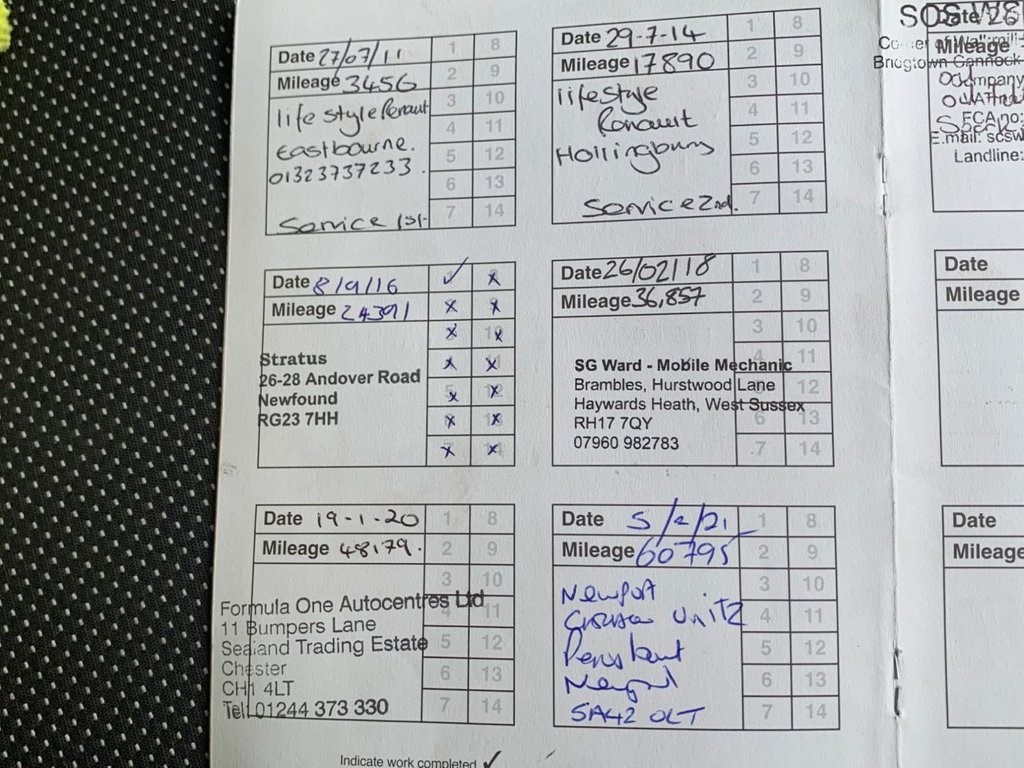 Date 27/07/11 1 8
Mileage 3456 2 9
lifestyle Renault 3 10
Eastbourne. 4 11
01323737233. 5 12
6 13
Service 1st 7 14
Date 29-7-14 1 8
Mileage 17890 2 9
lifestyle 3 10
Renault 4 11
Hollingbury 5 12
6 13
Service 2nd. 7 14
Date 8/9/16 ✓ x
Mileage 24391 x x
x x
Stratus x x
26-28 Andover Road x x
Newfound x x
RG23 7HH
x x
Date 26/02/18 1 8
Mileage 36,857 2 9
3 10
SG Ward - Mobile Mechanic 4 11
Brambles, Hurstwood Lane 12
Haywards Heath, West Sussex 6 13
RH17 7QY
07960 982783 7 14
Date 19-1-20 1 8
Mileage 48179. 2 9
3 10
Formula One Autocentres Ltd 4 11
11 Bumpers Lane
Sealand Trading Estate 5 12
Chester 6 13
CH1 4LT
Tel: 01244 373 330 7 14
Date 5/2/21 1 8
Mileage 60795 2 9
Newport 3 10
Unit 2 4 11
5 12
Newport 6 13
SA42 0LT 7 14
Indicate work completed ✓
SOS
Date
Mileage
Bridgtown Cannock
Company
FCA no:
E.mail:
Landline:
Date
Mileage
Date
Mileage